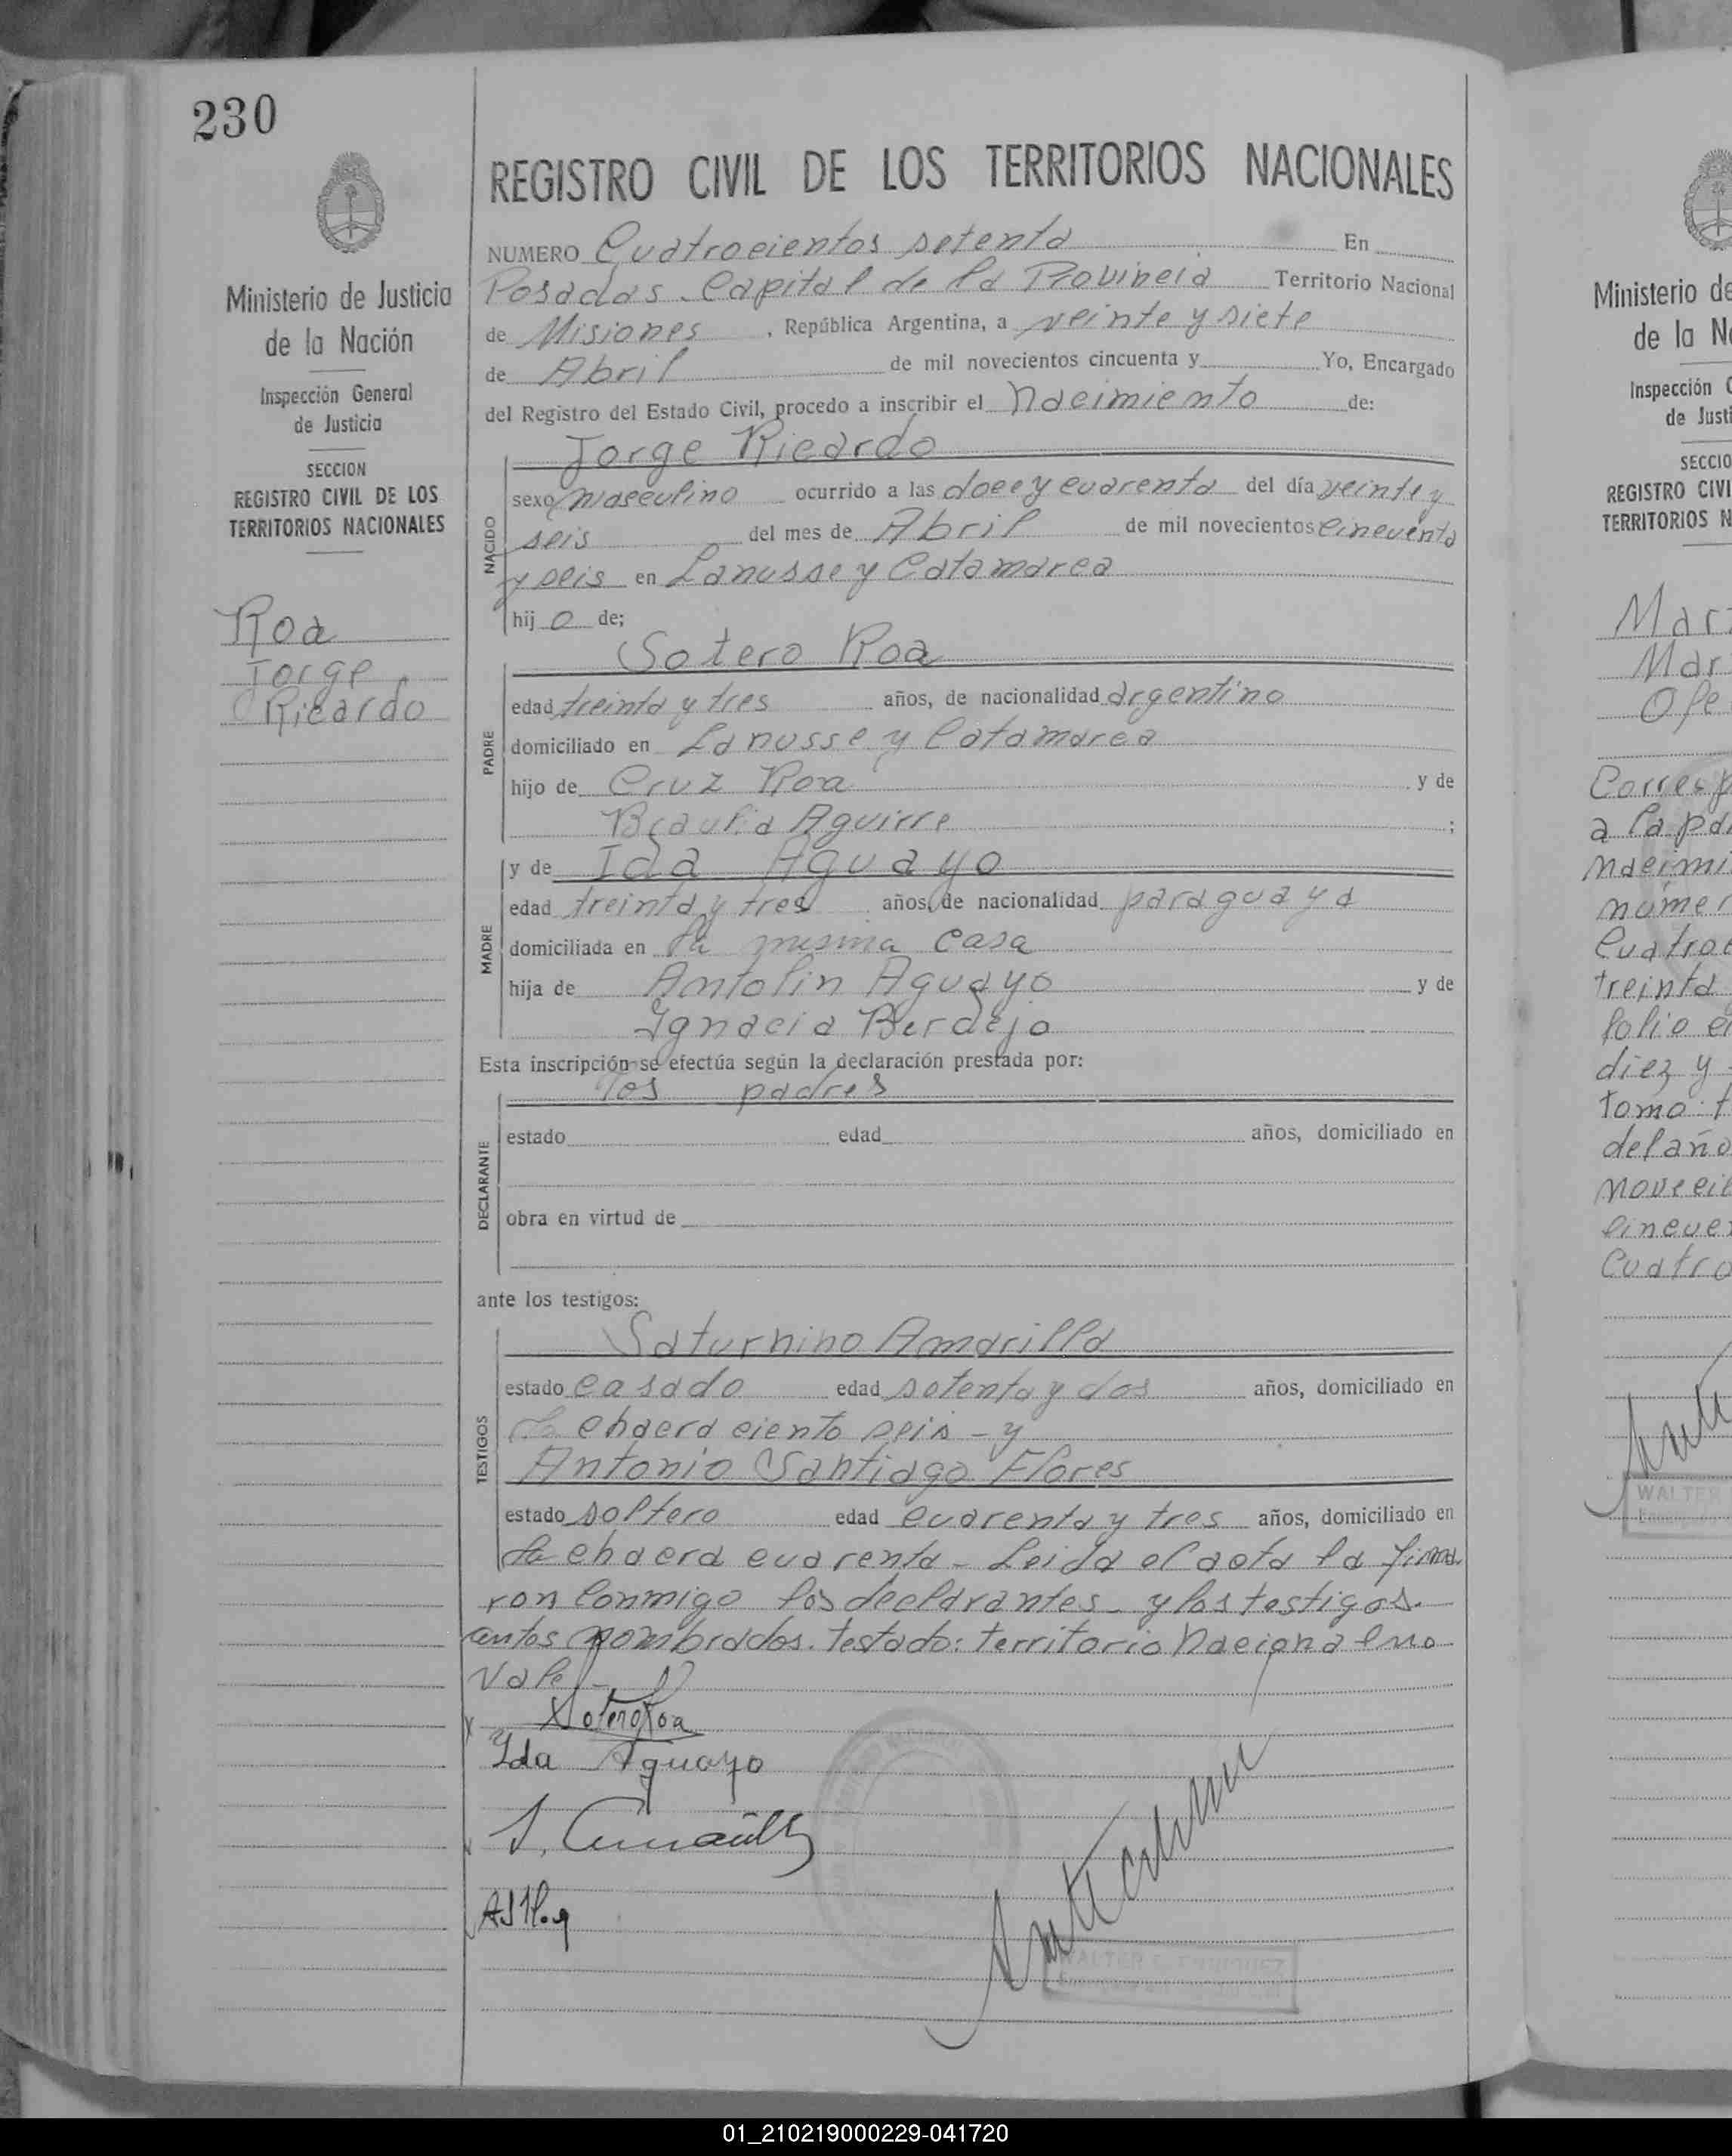 230
REGISTRO CIVIL DE LOS TERRITORIOS NACIONALES
NUMERO Cuatrocientos setenta En
Posadas. Capital de la Provincia Territorio Nacional
de Misiones, República Argentina, a veinte y siete
de Abril de mil novecientos cincuenta y Yo, Encargado
del Registro del Estado Civil, procedo a inscribir el nacimiento de:
Jorge Ricardo
NACIDO
sexo masculino ocurrido a las doce y cuarenta del día veinte y
seis del mes de Abril de mil novecientos cincuenta
y seis en Lanusse y Catamarca
hijo de;
Sotero Roa
PADRE
edad treinta y tres años, de nacionalidad argentino
domiciliado en Lanusse y Catamarca
hijo de Cruz Roa y de
Braulia Aguirre;
MADRE
y de Ida Aguayo
edad treinta y tres años, de nacionalidad paraguaya
domiciliada en la misma casa
hija de Antolin Aguayo y de
Ignacia Berdejo
Esta inscripción se efectúa según la declaración prestada por:
los padres
DECLARANTE
estado edad años, domiciliado en
obra en virtud de
ante los testigos:
TESTIGOS
Saturnino Amarilla
estado casado edad setenta y dos años, domiciliado en
la chacra ciento seis - y
Antonio Santiago Flores
estado soltero edad cuarenta y tres años, domiciliado en
la chacra cuarenta - Leida el acta la firma
ron conmigo los declarantes - y los testigos.
antes nombrados. testado: territorio nacional no
vale -
Sotero Roa
Ida Aguayo
WALTER
Ministerio de Justicia
de la Nación
Inspección General
de Justicia
SECCION
REGISTRO CIVIL DE LOS
TERRITORIOS NACIONALES
Roa
Jorge
Ricardo
Ministerio de
de la
Inspección
de
REGISTRO
TERRITORIOS
Mar
Mar
a la
treinta
folio
diez y
tomo
del año
WALTER
01_210219000229-041720